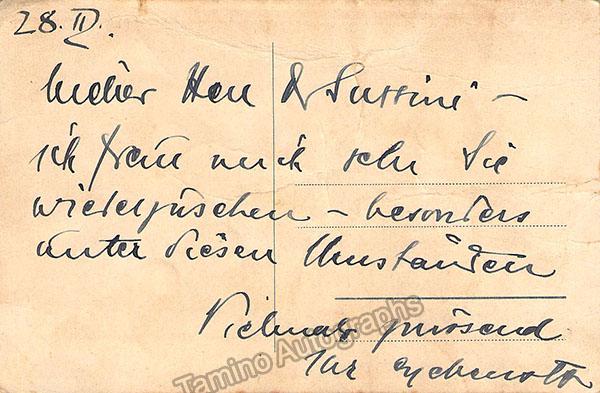 28. II.
lieber Herr Dr
ich freu mich sehr Sie
wiederzusehen – besonders
unter diesen Umständen
Vielmals grüssend
Ihr
Tamino Autographs